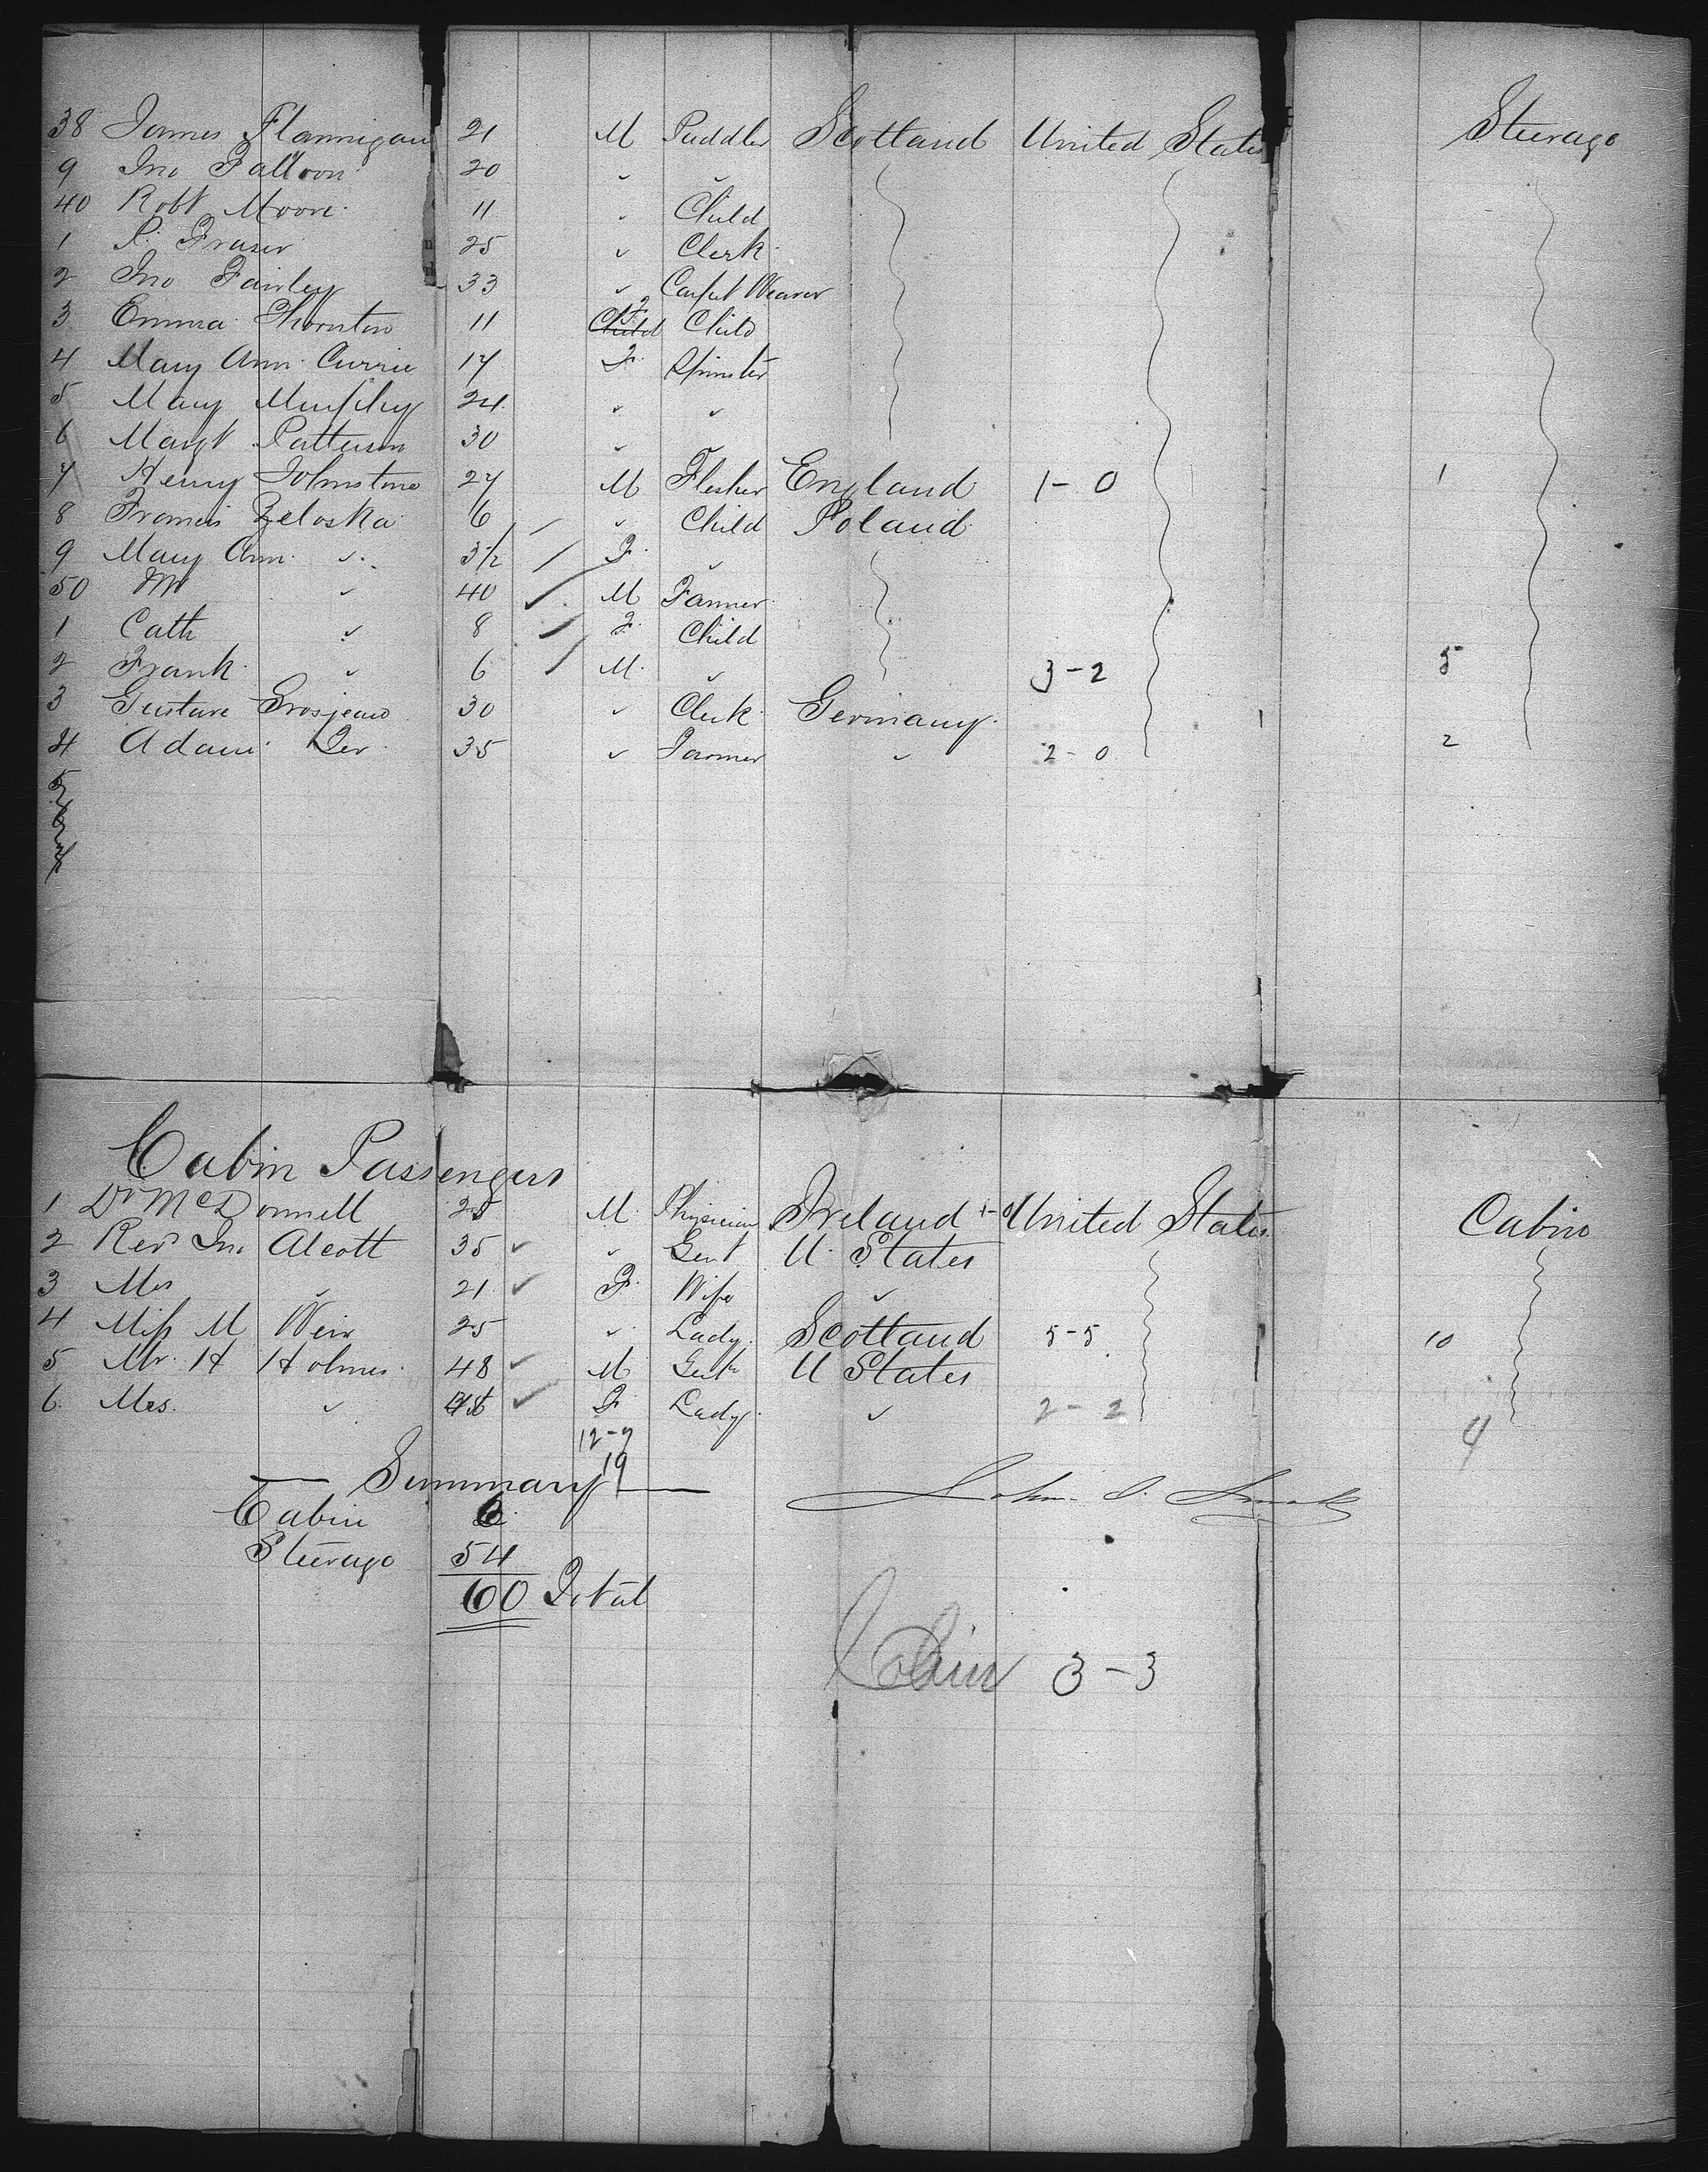 38 James Flannigan 21 M Puddler Scotland United States Steerage
9 Jno Falloon 20 " "
40 Robt Moore 11 " Child
1 P. Fraser 25 " Clerk
2 Jno Fairley 33 " Carpet Weaver
3 Emma Thornton 11 Child F Child
4 Mary Ann Currie 17 F. Spinster
5 Mary Murphy 24 " "
6 Margt Patterson 30 "
7 Henry Johnstone 27 M Flesher England 1-0 1
8 Francis Zeloska 6 " Child Poland
9 Mary Ann " 3½ F. "
50 " 40 M Farmer
1 Cath " 8 F. Child
2 Frank " 6 M. " 3-2 5
3 Gustave Grosjean 30 " Clerk Germany
4 Adam 35 " Farmer " 2-0 2
5
Cabin Passengers
1 Dr McDonnell 25 M. Physician Ireland 1-0 United States Cabin
2 Revd Jno Alcott 35 " Gent U. States
3 Mrs " 21 F. Wife "
4 Miss M Weir 25 " Lady Scotland 5-5 10
5 Mr. H Holmes 48 M Gent U States
6. Mrs. " F Lady " 2-2 4
12-7
19
Summary
Cabin 6
Steerage 54
60 Total
Cabin 3-3